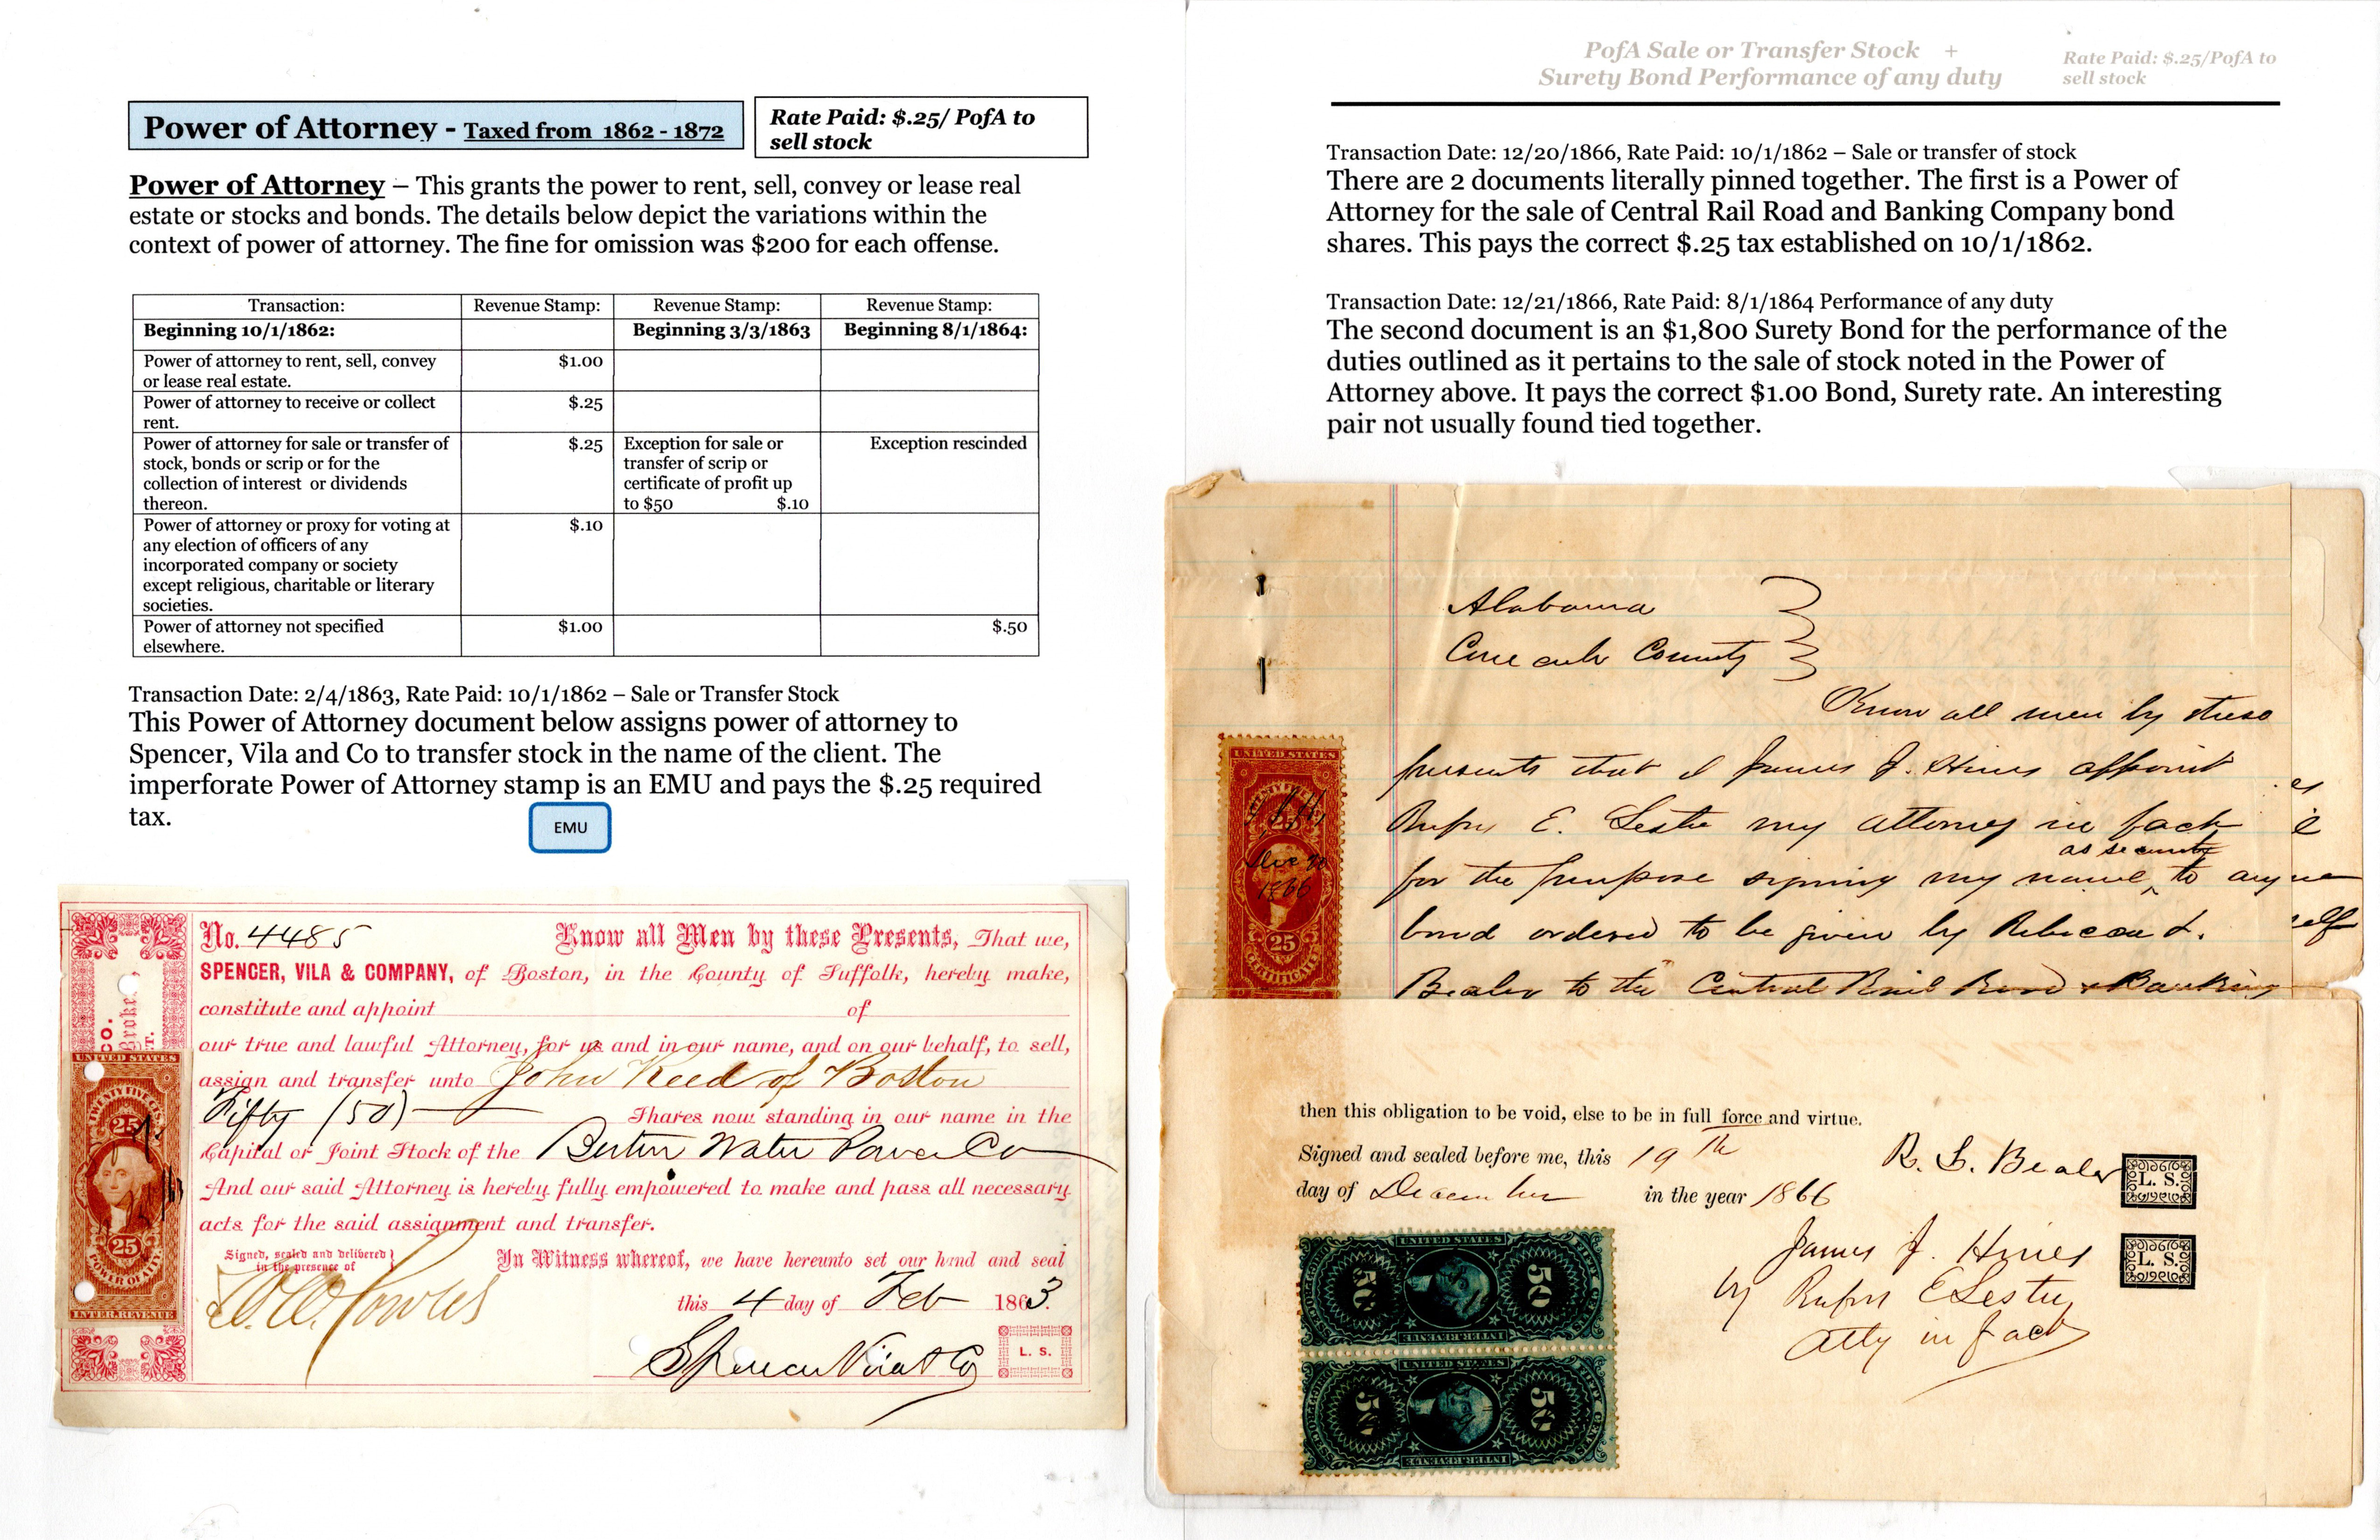 Power of Attorney - Taxed from 1862 - 1872
Rate Paid: $.25/ PofA to
sell stock
Power of Attorney – This grants the power to rent, sell, convey or lease real
estate or stocks and bonds. The details below depict the variations within the
context of power of attorney. The fine for omission was $200 for each offense.
Transaction: Revenue Stamp: Revenue Stamp: Revenue Stamp:
Beginning 10/1/1862: Beginning 3/3/1863 Beginning 8/1/1864:
Power of attorney to rent, sell, convey $1.00
or lease real estate.
Power of attorney to receive or collect $.25
rent.
Power of attorney for sale or transfer of $.25 Exception for sale or Exception rescinded
stock, bonds or scrip or for the transfer of scrip or
collection of interest or dividends certificate of profit up
thereon. to $50 $.10
Power of attorney or proxy for voting at $.10
any election of officers of any
incorporated company or society
except religious, charitable or literary
societies.
Power of attorney not specified $1.00 $.50
elsewhere.
Transaction Date: 2/4/1863, Rate Paid: 10/1/1862 – Sale or Transfer Stock
This Power of Attorney document below assigns power of attorney to
Spencer, Vila and Co to transfer stock in the name of the client. The
imperforate Power of Attorney stamp is an EMU and pays the $.25 required
tax.
EMU
No. 4485 Know all Men by these Presents, That we,
SPENCER, VILA & COMPANY, of Boston, in the County of Suffolk, hereby make,
constitute and appoint of
our true and lawful Attorney, for us and in our name, and on our behalf, to sell,
assign and transfer unto John Reed of Boston
Fifty (50) Shares now standing in our name in the
Capital or Joint Stock of the Boston Water Power Co
And our said Attorney is hereby fully empowered to make and pass all necessary
acts for the said assignment and transfer.
Signed, sealed and delivered
in the presence of
In Witness whereof, we have hereunto set our hand and seal
this 4 day of Feb 1863.
Spencer Vila & Co
L. S.
CO.
Broke
T.
UNITED STATES
TWENTY FIVE CTS.
25
25
POWER OF ATT'Y
INTER. REVENUE
PofA Sale or Transfer Stock +
Surety Bond Performance of any duty
Rate Paid: $.25/PofA to
sell stock
Transaction Date: 12/20/1866, Rate Paid: 10/1/1862 – Sale or transfer of stock
There are 2 documents literally pinned together. The first is a Power of
Attorney for the sale of Central Rail Road and Banking Company bond
shares. This pays the correct $.25 tax established on 10/1/1862.
Transaction Date: 12/21/1866, Rate Paid: 8/1/1864 Performance of any duty
The second document is an $1,800 Surety Bond for the performance of the
duties outlined as it pertains to the sale of stock noted in the Power of
Attorney above. It pays the correct $1.00 Bond, Surety rate. An interesting
pair not usually found tied together.
Alabama
Conecuh County
Know all men by these
presents that I James J. Hines appoint
Rufus E. Lester my attorney in fact
as security
for the purpose signing my name to any
bond ordered to be given by Rebecca L.
Bealer to the Central Rail Road & Banking
UNITED STATES
TWENTY FIVE
Dec 20
1866
25
CERTIFICATE
then this obligation to be void, else to be in full force and virtue.
Signed and sealed before me, this 19th
day of December in the year 1866
R. L. Bealer
L. S.
James J. Hines
L. S.
by Rufus E Lester
Atty in fact
UNITED STATES
50 50
FIFTY CENTS
INTER. REVENUE
UNITED STATES
50 50
FIFTY CENTS
INTER. REVENUE